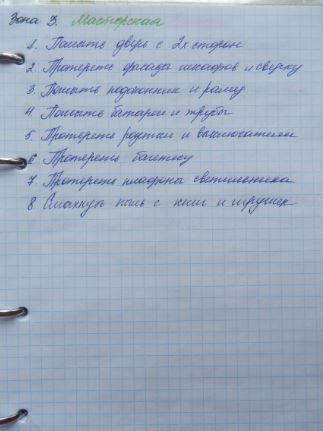 Зона 3. Мастерская
1. Помыть дверь с 2х сторон
2. Протереть фасады шкафов и сверху
3. Помыть подоконник и раму
4. Помыть батареи и трубы
5. Протереть розетки и выключатели
6 Протереть багетку
7. Протереть плафоны светильника
8 Смахнуть пыль с книг и игрушек